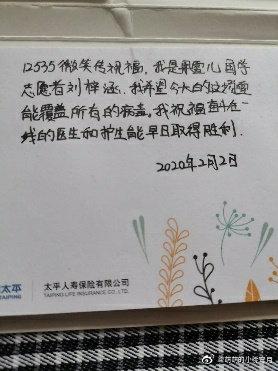 12535微笑传祝福，我是郭雪儿国学
志愿者刘梓涵，我希望今天的这场雪
能覆盖所有的病毒。我祝福奋斗在一
线的医生和护士能早日取得胜利.
2020年2月2日
太平
TAIPING
太平人寿保险有限公司
TAIPING LIFE INSURANCE CO., LTD.